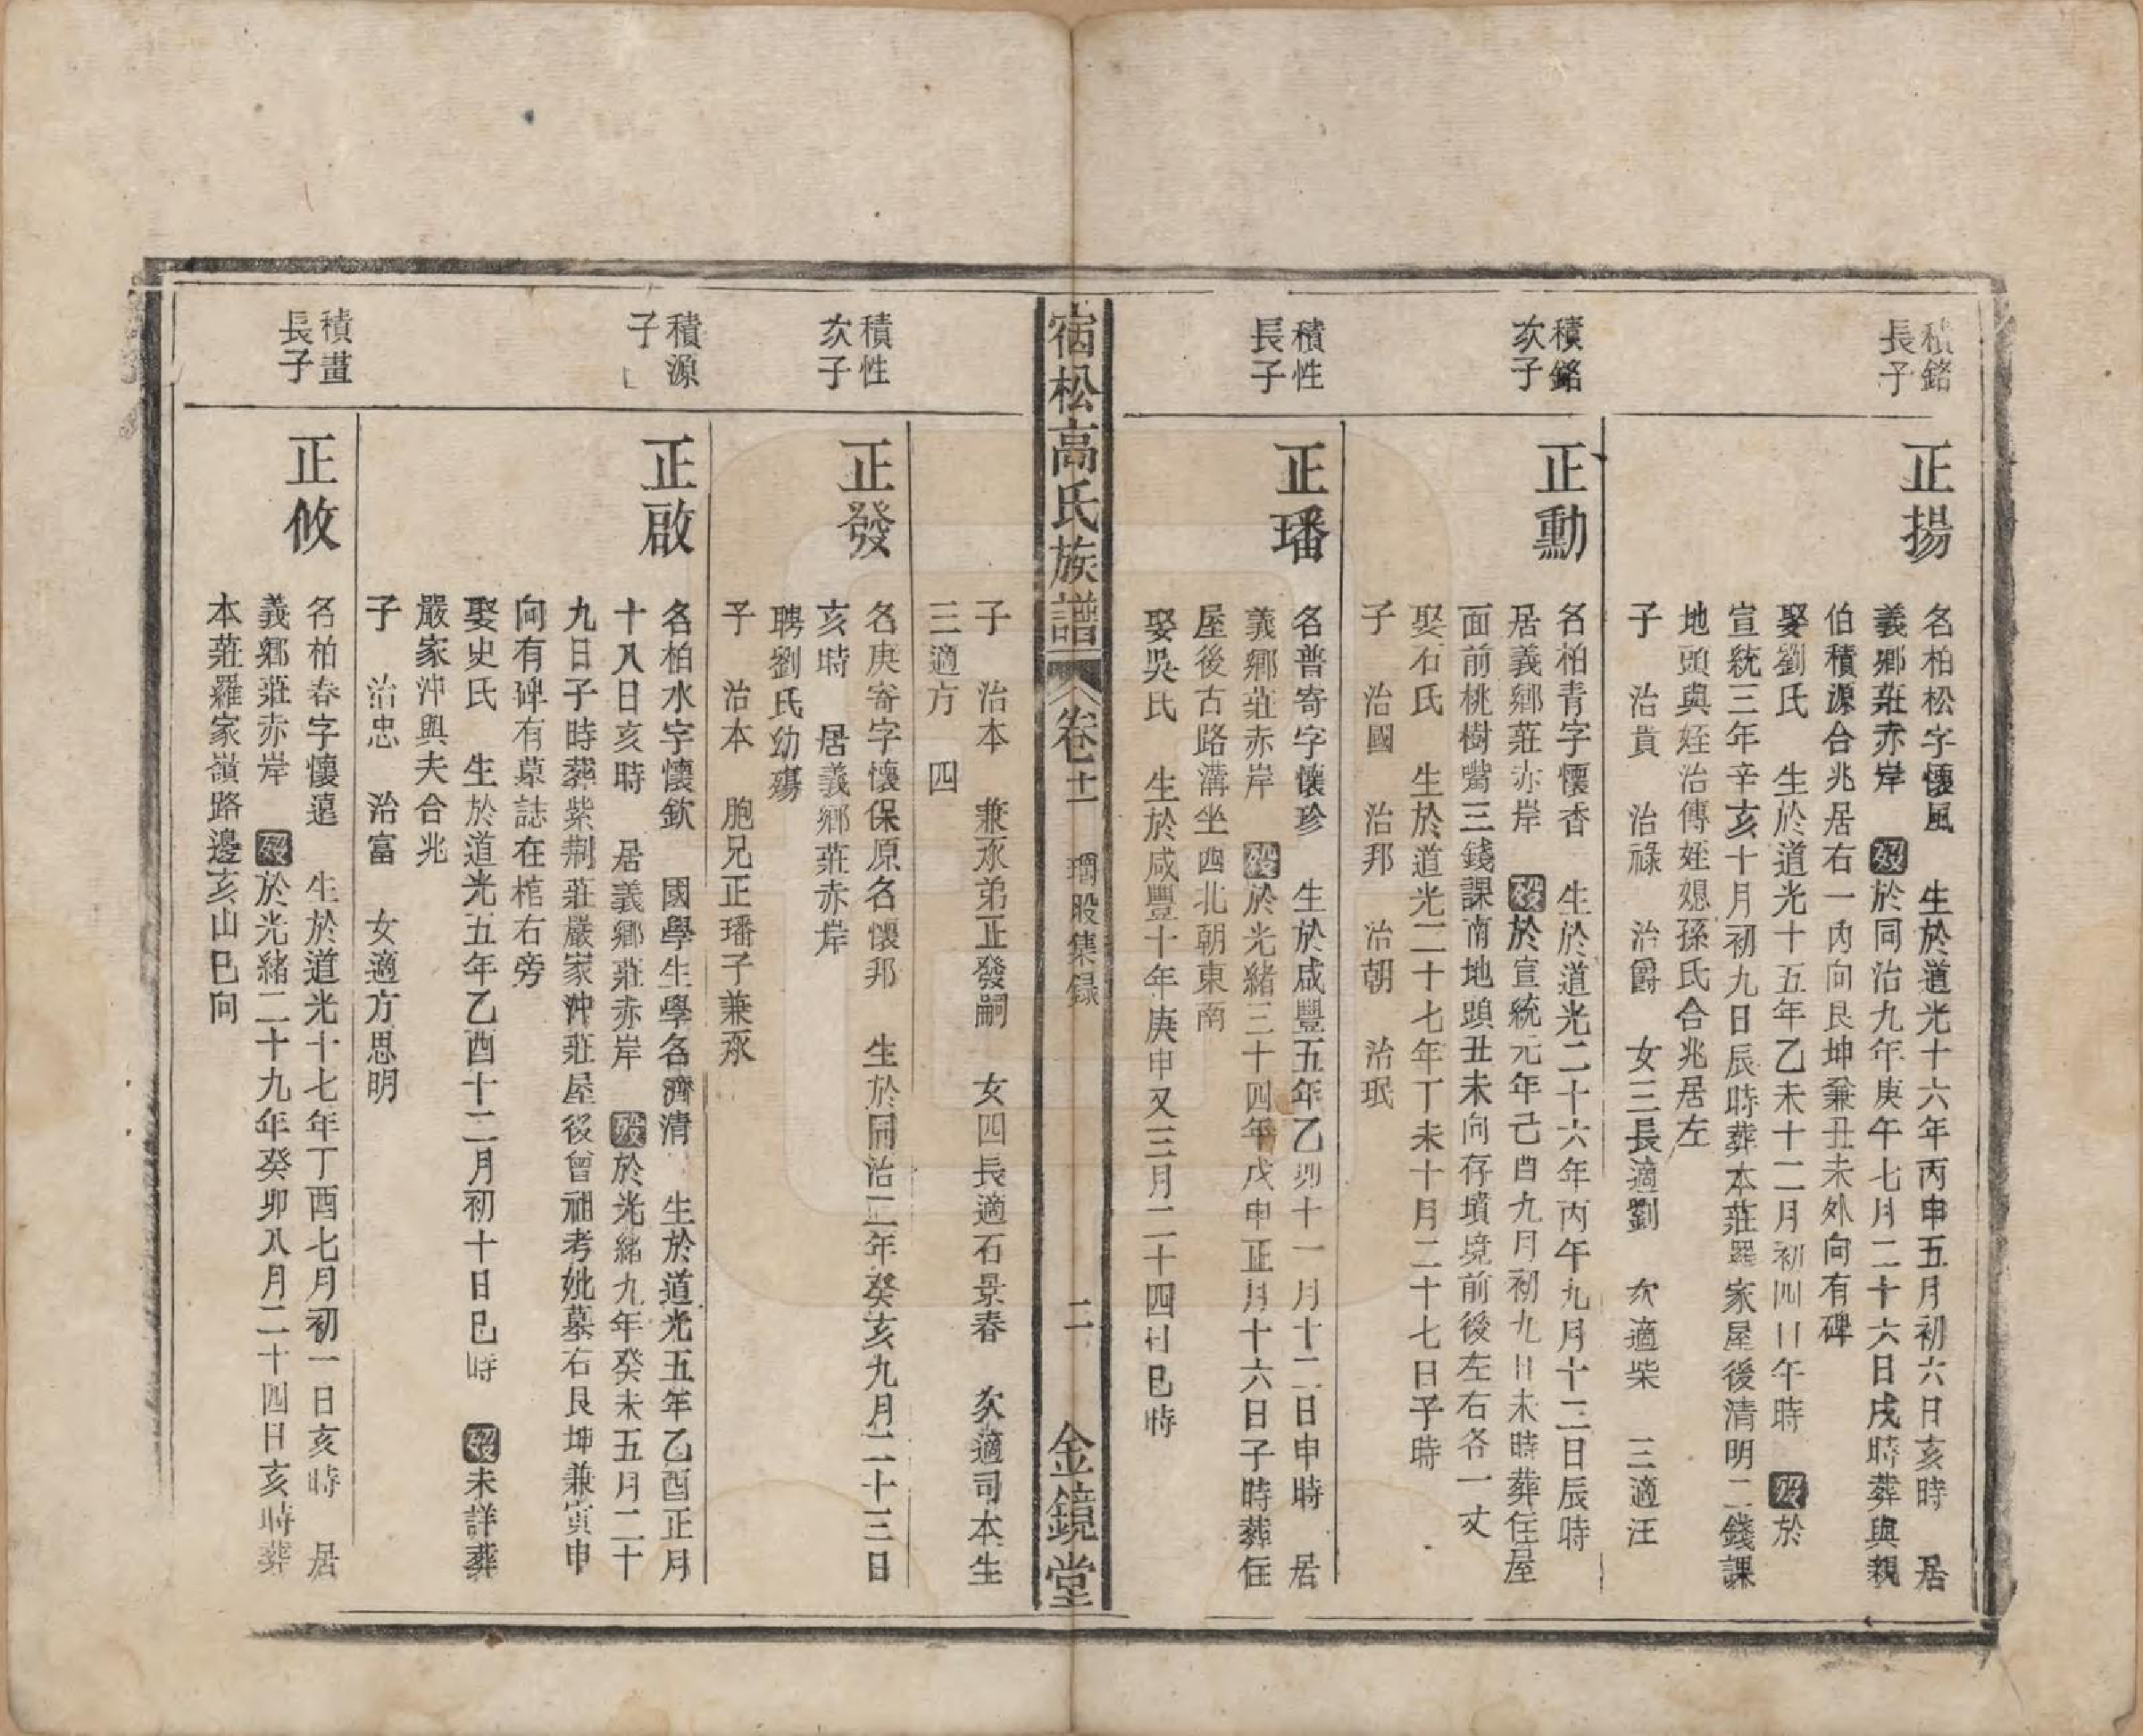 積銘
長子
正揚
名柏松字懷風　生於道光十六年丙申五月初六日亥時　居
義鄉莊赤岸　歿於同治九年庚午七月二十六日戌時葬與親
伯積源合兆居右一內向艮坤兼丑未外向有碑
娶劉氏　生於道光十五年乙未十二月初四日午時　歿於
宣統三年辛亥十月初九日辰時葬本莊羅家屋後清明二錢課
地頭與姪治傳姪媳孫氏合兆居左
子　治貴　治祿　治爵　女三長適劉　次適柴　三適汪
積銘
次子
正勳
名柏青字懷香　生於道光二十六年丙午九月十三日辰時
居義鄉莊赤岸　歿於宣統元年己酉九月初九日未時葬住屋
面前桃樹嘴三錢課南地頭丑未向存墳境前後左右各一丈
娶石氏　生於道光二十七年丁未十月二十七日子時
子　治國　治邦　治朝　治珉
積性
長子
正璠
名普寄字懷珍　生於咸豐五年乙卯十一月十二日申時　居
義鄉莊赤岸　歿於光緒三十四年戊申正月十六日子時葬住
屋後古路溝坐西北朝東南
娶吳氏　生於咸豐十年庚申又三月二十四日巳時
宿松高氏族譜　卷十一　瑁股集録　二　金鏡堂
子　治本　兼承弟正發嗣　女四長適石景春　次適司本生
三適方　四
積性
次子
正發
名庚寄字懷保原名懷邦　生於同治二年癸亥九月二十三日
亥時　居義鄉莊赤岸
聘劉氏幼殤
子　治本　胞兄正璠子兼承
積源
子
正啟
名柏水字懷欽　國學生學名濟清　生於道光五年乙酉正月
十八日亥時　居義鄉莊赤岸　歿於光緒九年癸未五月二十
九日子時葬紫荆莊嚴家沖莊屋後曾祖考妣墓右艮坤兼寅申
向有碑有墓誌在棺右旁
娶史氏　生於道光五年乙酉十二月初十日巳時　歿未詳葬
嚴家沖與夫合兆
子　治忠　治富　女適方思明
積畫
長子
正攸
名柏春字懷遠　生於道光十七年丁酉七月初一日亥時　居
義鄉莊赤岸　歿於光緒二十九年癸卯八月二十四日亥時葬
本莊羅家嶺路邊亥山巳向